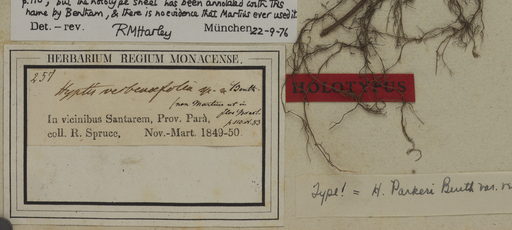 but the holotype sheet has been annotated with this
name by Bentham, & there is no evidence that Martius ever used it.
Det. – rev. RMHarley München 22-9-76
HERBARIUM REGIUM MONACENSE.
257
Hyptis verbenaefolia Benth.
(non Martius
In vicinibus Santarem, Prov. Pará,
coll. R. Spruce, Nov.-Mart. 1849-50.
HOLOTYPUS
Type! = H. Parkeri Benth var.